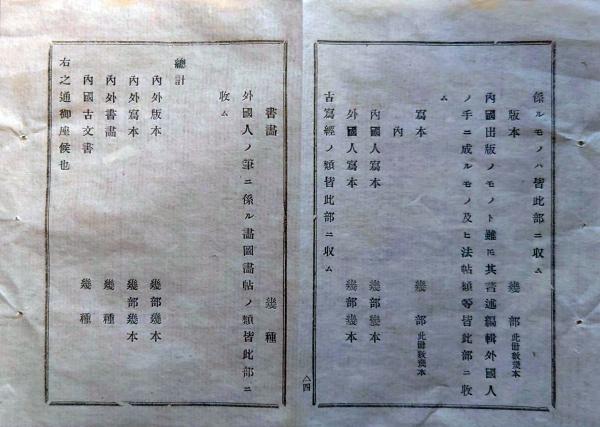 係ルモノハ皆此部ニ收ム
版本　幾部此冊數幾本
內國出版ノモノト雖𪜈其著述編輯外國人
ノ手ニ成ルモノ及ヒ法帖類等皆此部ニ收
ム
寫本　幾部此冊數幾本
內
內國人寫本　幾部幾本
外國人寫本　幾部幾本
古寫經ノ類皆此部ニ收ム
四
書畵　幾種
外國人ノ筆ニ係ル畵圖畵帖ノ類皆此部ニ
收ム
總計
內外版本　幾部幾本
內外寫本　幾部幾本
內外書畵　幾種
內國古文書　幾種
右之通御座候也